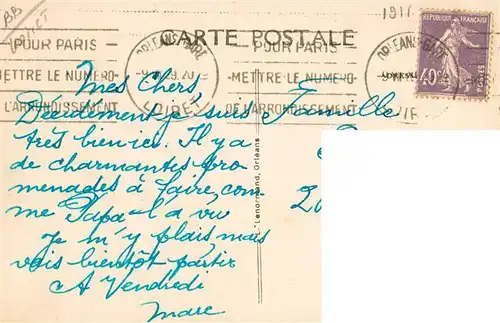 BB
1917
CARTE POSTALE
POUR PARIS
METTRE LE NUMERO
DE L'ARRONDISSEMENT
POUR PARIS
METTRE LE NUMERO
L'ARRONDISSEMENT
ORLEANS-GARE
LOIRET
ORLEANS-GARE
REPUBLIQUE FRANÇAISE
40c
POSTES
Mes Chers
Décidement je suis
très bien ici. Il y a
de charmantes pro
menades à faire, com-
me Papa l a vu
Je m'y plais, mais
vais bientôt partir
A Vendredi
Marc
Famille
Lenormand, Orléans